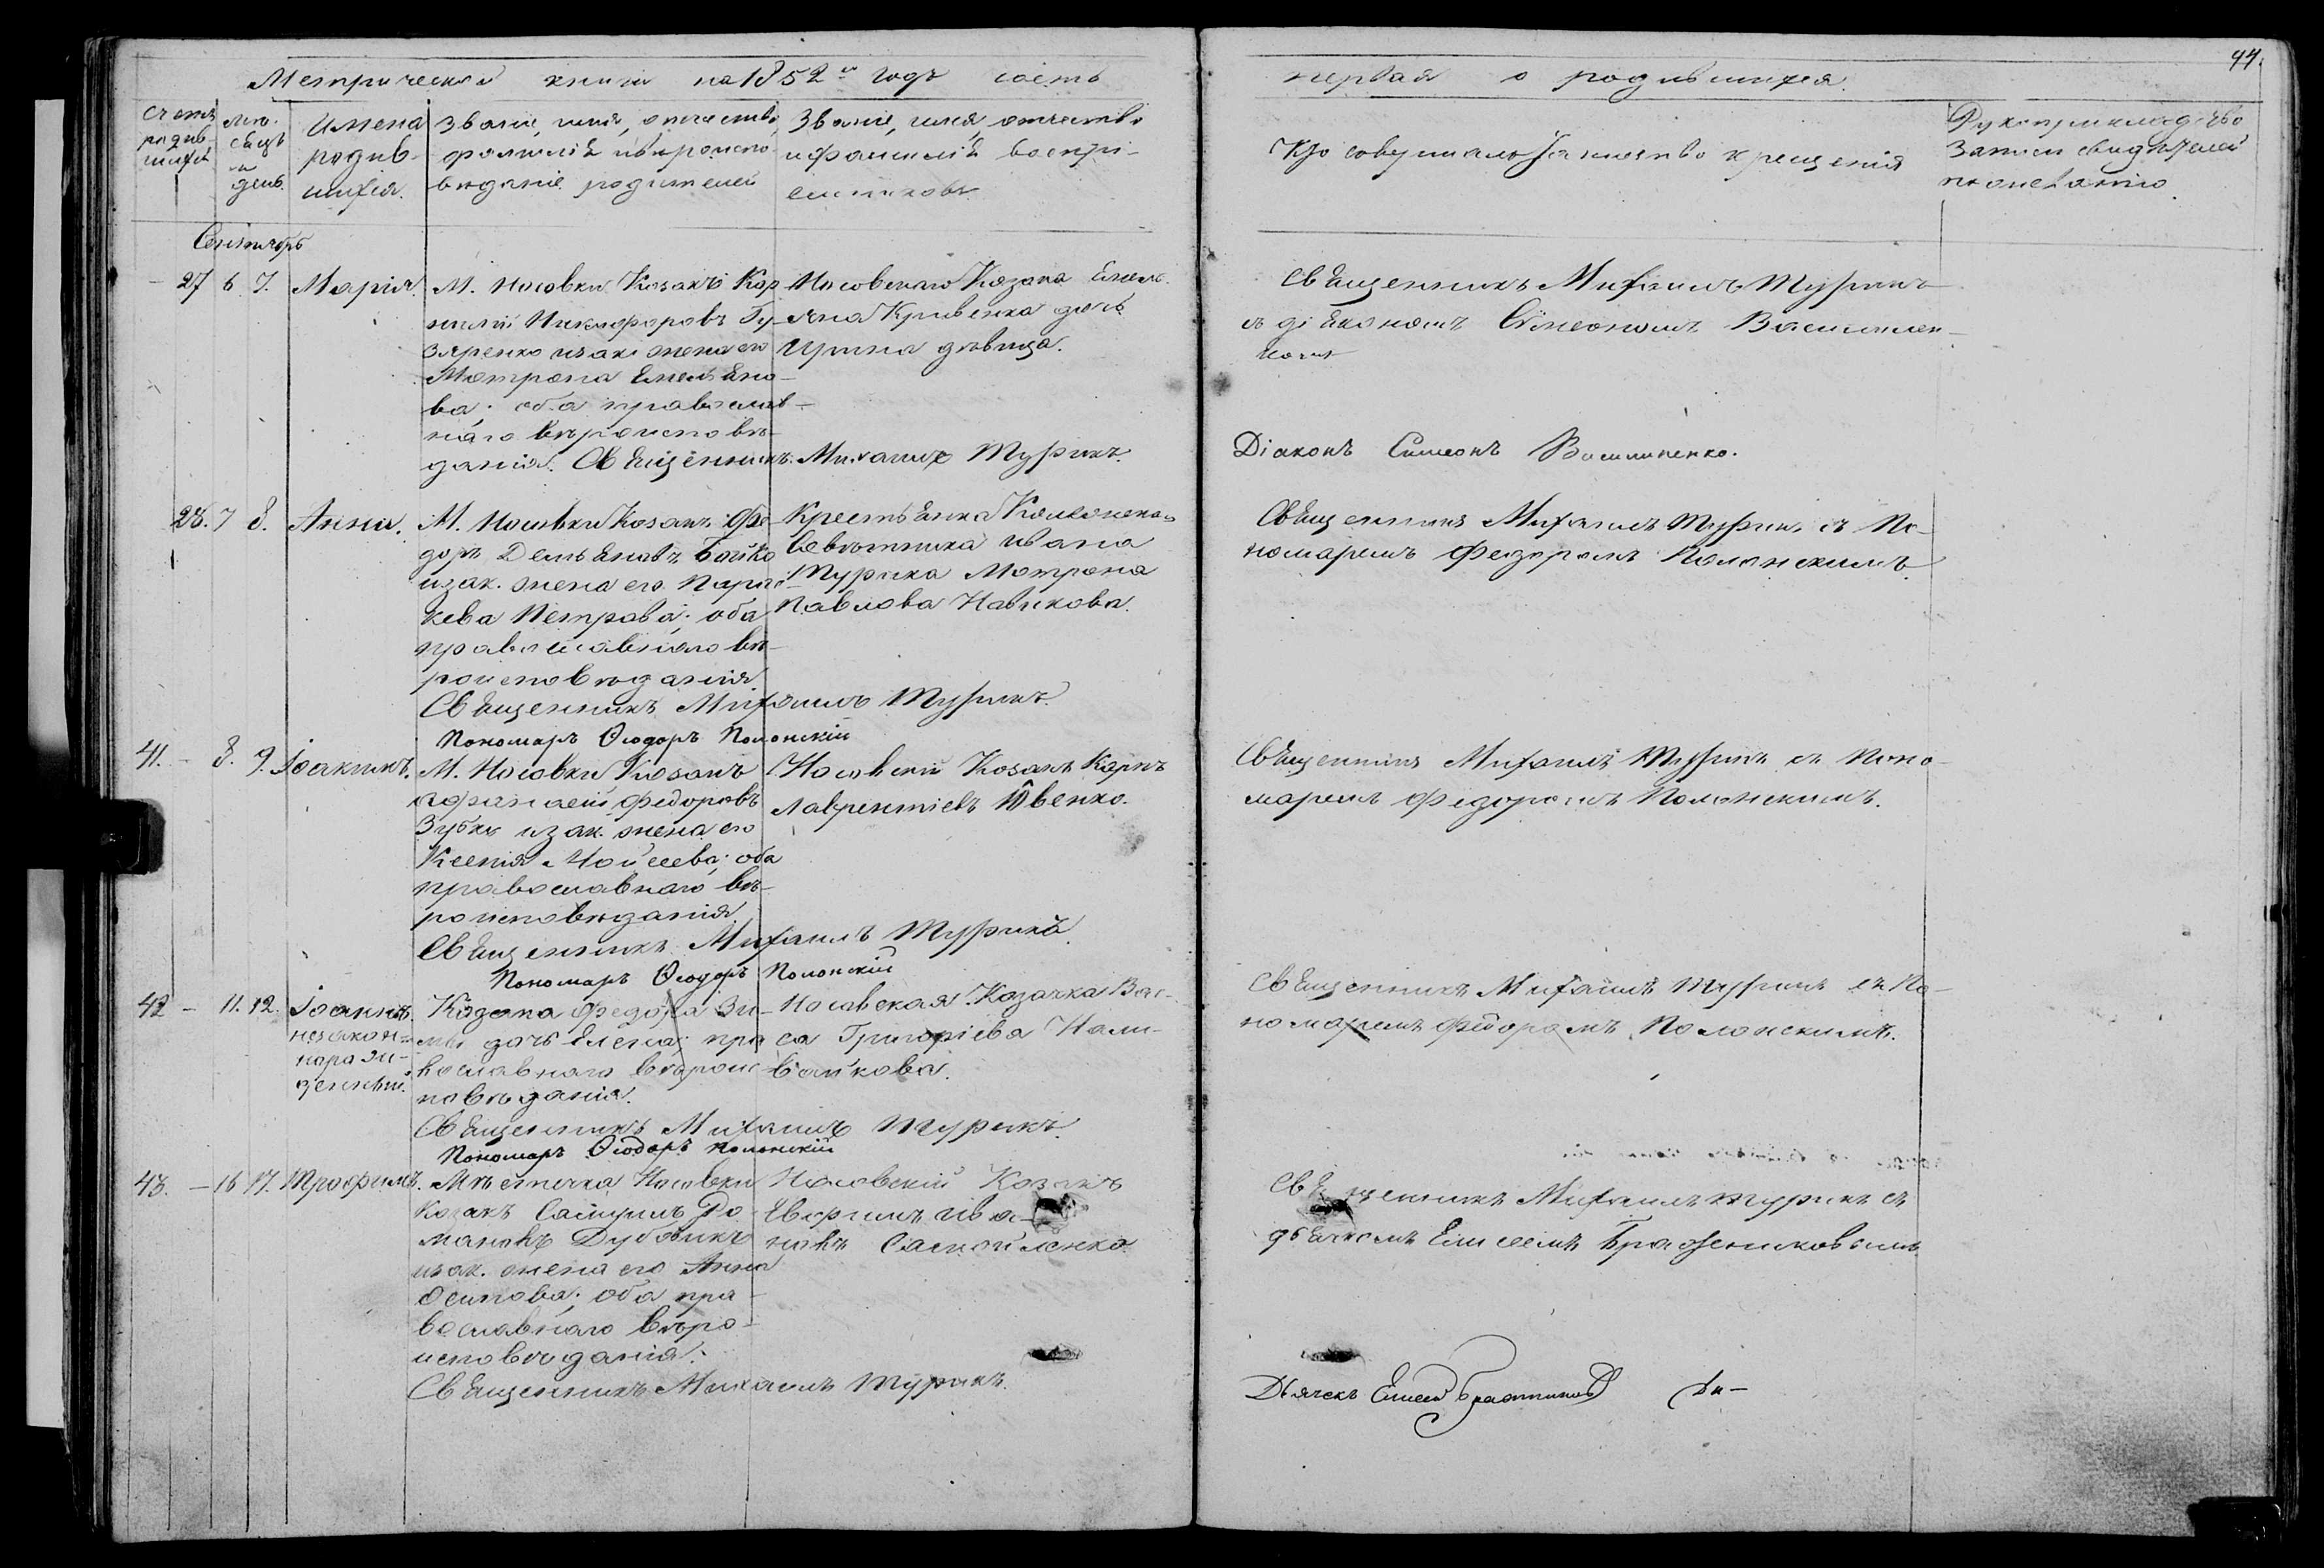 Метрической книги на 1852й годъ часть
первая о родившихся.
44.
Счетъ родив-шихся
Мѣ-сяцъ и день.
Имена родив-шихся.
Званіе, имя, отчество,
фамилія и вѣроиспо-
вѣданіе родителей
Званіе, имя, отчество
и фамилія воспрі-
емниковъ.
Кто совершалъ таинство крещенія
Рукоприкладство
записи свидѣтелей
по желанію.
Сентябрь
27 6 7. Марія.
М. Носовки Козакъ Кор-
нилій Никифоровъ Гу-
зяренко и зак. жена его
Матрона Емельяно-
ва; оба православ-
наго вѣроисповѣ-
данія. Священникъ Михаилъ Турикъ.
Носовскаго Козака Емель-
яна Кривенка дочь
Ирина дѣвица.
Священникъ Михаилъ Турикъ
съ діякономъ Симеономъ Василен-
комъ
Діаконъ Симеонъ Василиненко.
28. 7 8. Анна.
М. Носовки Козакъ Фе-
доръ Демьяновъ Бойко
и зак. жена его Парас-
кева Петрова; оба
православнаго вѣ-
роисповѣданія
Священникъ Михаилъ Турикъ.
Пономарь Ѳеодоръ Полонскій
Крестьянка
Совѣтника Ивана
Турика Матрона
Павлова Новикова.
Священникъ Михаилъ Турикъ съ По-
номаремъ Федоромъ Полонскимъ.
41. - 8. 9. Іоакимъ.
М. Носовки Козакъ
Афанасій Федоровъ
Зубко и зак. жена его
Ксенія Мойсеева; оба
православнаго вѣ-
роисповѣданія.
Священникъ Михаилъ Турикъ.
Пономарь Ѳеодоръ Полонскій
Носовскій Козакъ Карпъ
Лаврентіевъ Ювенко.
Священникъ Михаилъ Турикъ съ Поно-
маремъ Федоромъ Полонскимъ.
42 - 11. 12. Іоаннъ.
незакон-
норож-
денный.
Козака Федора Зи-
мы дочь Елена; пра-
вославнаго вѣроис-
повѣданія.
Священникъ Михаилъ Турикъ.
Пономарь Ѳеодоръ Полонскій
Носовская Козачка Вас-
са Григоріева Нали-
вайкова.
Священникъ Михаилъ Турикъ съ По-
номаремъ Федоромъ Полонскимъ.
43. - 16 17. Трофимъ.
Мѣстечка Носовки
Козакъ Самуилъ Ро-
мановъ Дубовикъ
и зак. жена его Анна
Осипова; оба пра-
вославнаго вѣро-
исповѣданія.
Священникъ Михаилъ Турикъ.
Носовскій Козакъ
Ива-
новъ Самойленко.
Священникъ Михаилъ Турикъ съ
дьячкомъ Елисеемъ Бражниковымъ
Дьячекъ Елисей Бражниковъ